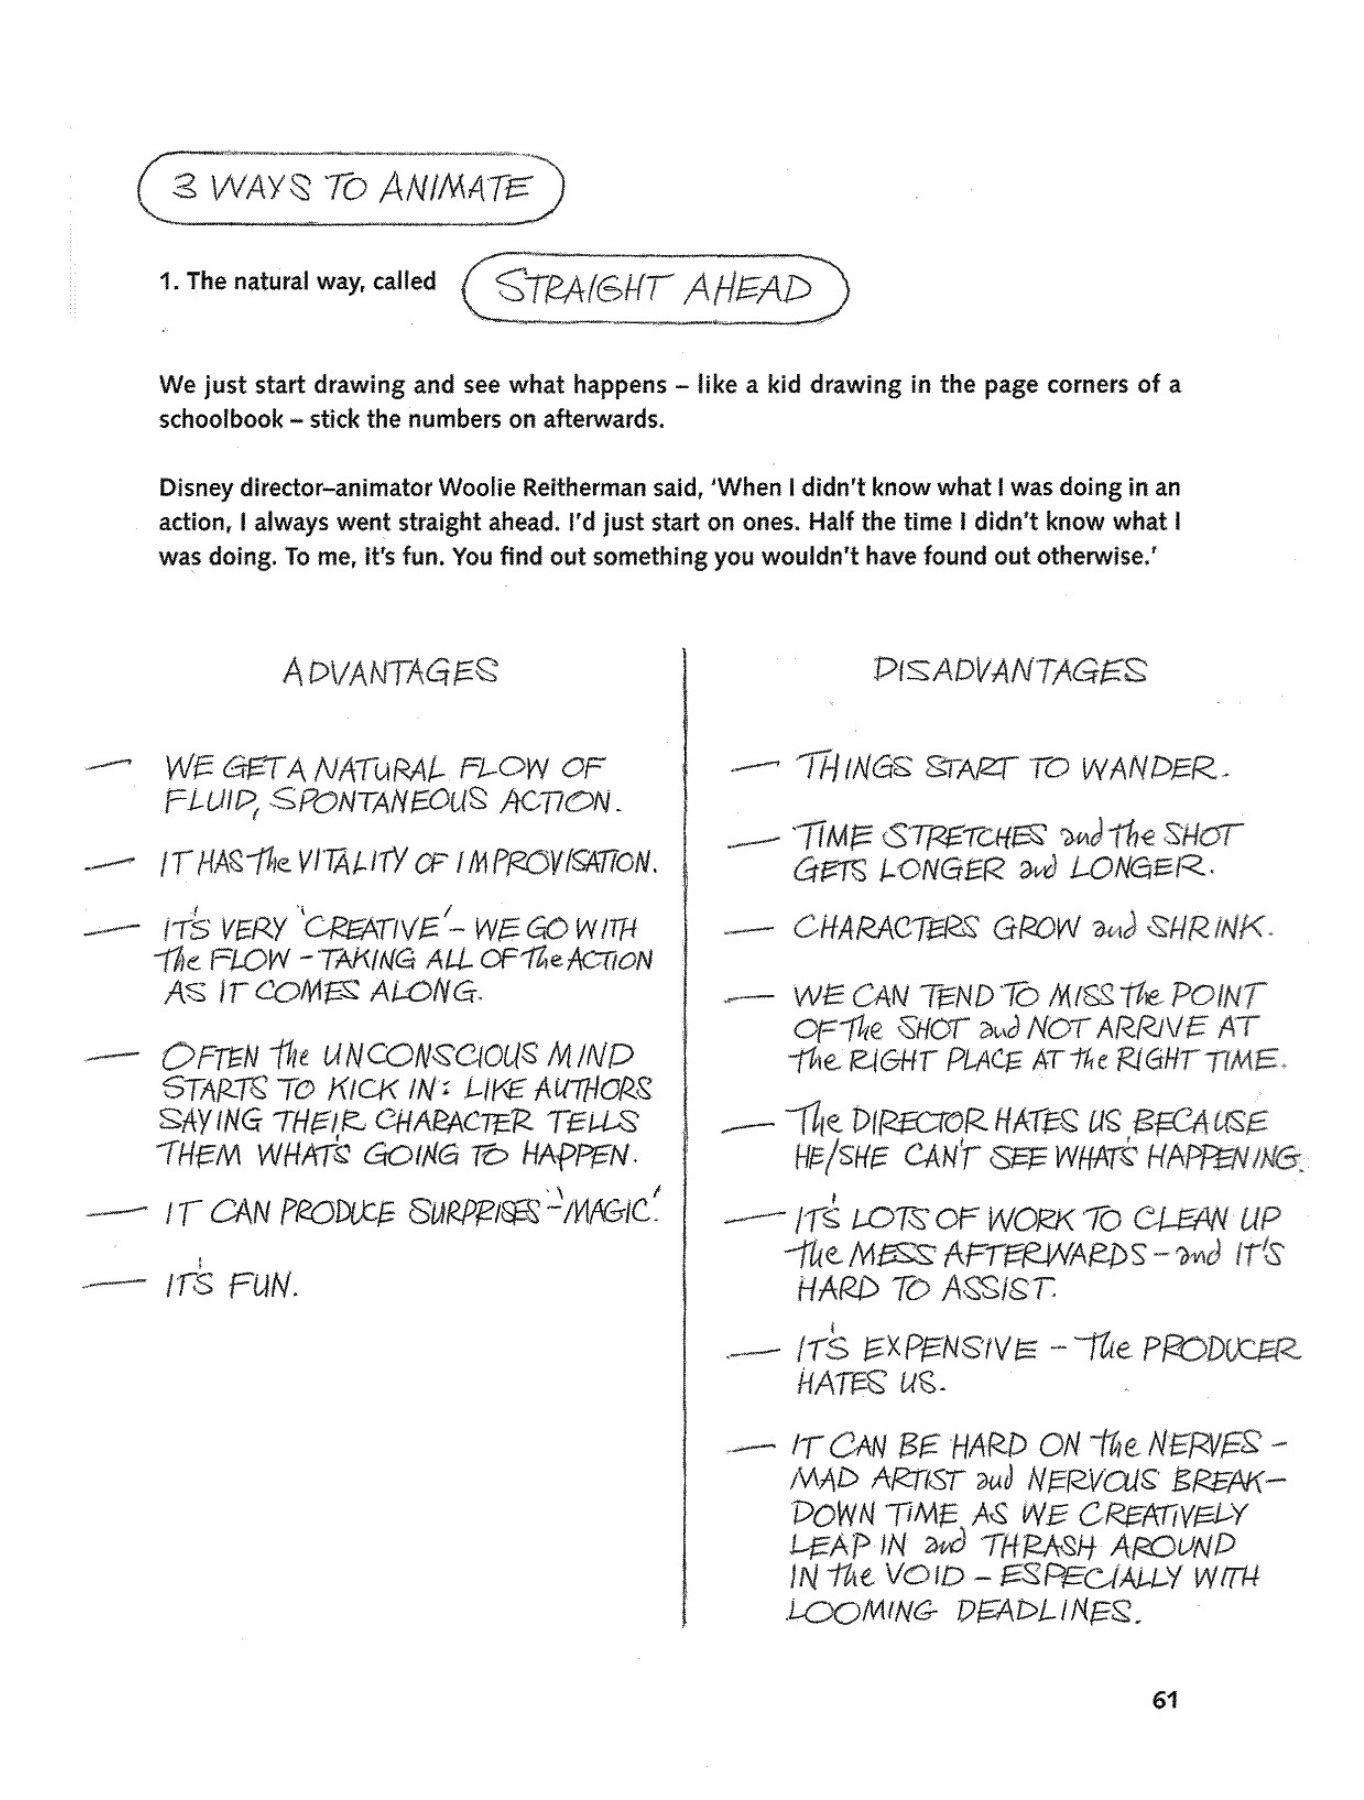 3 WAYS TO ANIMATE
1. The natural way, called STRAIGHT AHEAD
We just start drawing and see what happens – like a kid drawing in the page corners of a
schoolbook – stick the numbers on afterwards.
Disney director–animator Woolie Reitherman said, 'When I didn't know what I was doing in an
action, I always went straight ahead. I'd just start on ones. Half the time I didn't know what I
was doing. To me, it's fun. You find out something you wouldn't have found out otherwise.'
ADVANTAGES
— WE GET A NATURAL FLOW OF
FLUID, SPONTANEOUS ACTION.
— IT HAS the VITALITY OF IMPROVISATION.
— IT'S VERY 'CREATIVE' – WE GO WITH
The FLOW – TAKING ALL OF The ACTION
AS IT COMES ALONG.
— OFTEN the UNCONSCIOUS MIND
STARTS TO KICK IN: LIKE AUTHORS
SAYING THEIR CHARACTER TELLS
THEM WHAT'S GOING TO HAPPEN.
— IT CAN PRODUCE SURPRISES – 'MAGIC'.
— IT'S FUN.
DISADVANTAGES
— THINGS START TO WANDER.
— TIME STRETCHES and the SHOT
GETS LONGER and LONGER.
— CHARACTERS GROW and SHRINK.
— WE CAN TEND TO MISS the POINT
OF The SHOT and NOT ARRIVE AT
the RIGHT PLACE AT the RIGHT TIME.
— The DIRECTOR HATES US BECAUSE
HE/SHE CAN'T SEE WHAT'S HAPPENING.
— IT'S LOTS OF WORK TO CLEAN UP
the MESS AFTERWARDS – and IT'S
HARD TO ASSIST.
— IT'S EXPENSIVE – The PRODUCER
HATES US.
— IT CAN BE HARD ON the NERVES –
MAD ARTIST and NERVOUS BREAK–
DOWN TIME, AS WE CREATIVELY
LEAP IN and THRASH AROUND
IN the VOID – ESPECIALLY WITH
LOOMING DEADLINES.
61